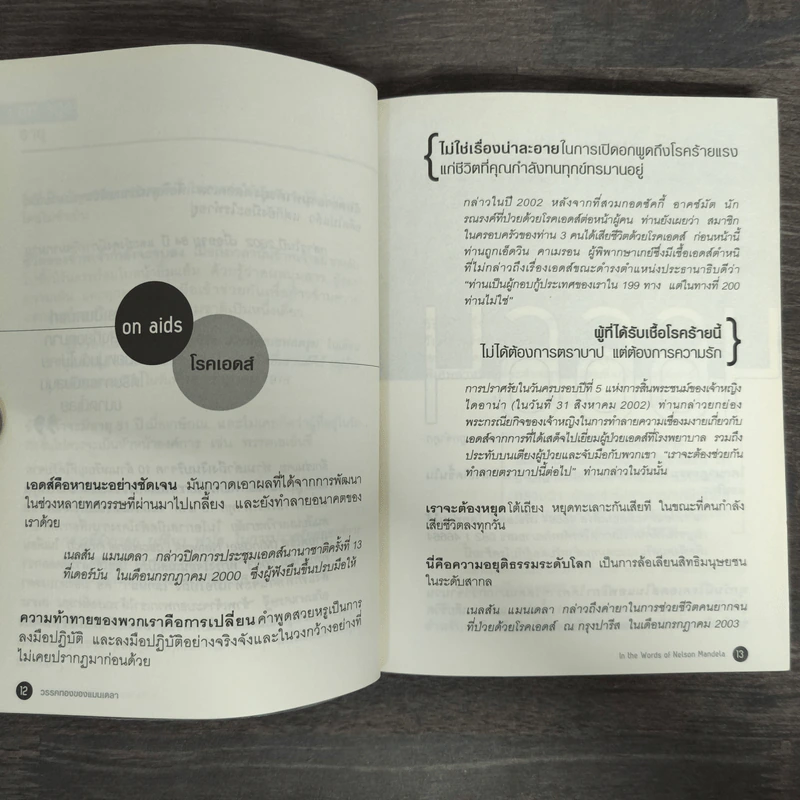 on aids
โรคเอดส์
เอดส์คือหายนะอย่างชัดเจน มันกวาดเอาผลที่ได้จากการพัฒนา
ในช่วงหลายทศวรรษที่ผ่านมาไปเกลี้ยง และยังทำลายอนาคตของ
เราด้วย
เนลสัน แมนเดลา กล่าวปิดการประชุมเอดส์นานาชาติครั้งที่ 13
ที่เดอร์บัน ในเดือนกรกฎาคม 2000 ซึ่งผู้ฟังยืนขึ้นปรบมือให้
ความท้าทายของพวกเราคือการเปลี่ยน คำพูดสวยหรูเป็นการ
ลงมือปฏิบัติ และลงมือปฏิบัติอย่างจริงจังและในวงกว้างอย่างที่
ไม่เคยปรากฏมาก่อนด้วย
12 วรรคทองของแมนเดลา
{ไม่ใช่เรื่องน่าละอายในการเปิดอกพูดถึงโรคร้ายแรง
แก่ชีวิตที่คุณกำลังทนทุกข์ทรมานอยู่
กล่าวในปี 2002 หลังจากที่สวมกอดซัคกี้ อาคซ์มัต นัก
รณรงค์ที่ป่วยด้วยโรคเอดส์ต่อหน้าผู้คน ท่านยังเผยว่า สมาชิก
ในครอบครัวของท่าน 3 คนได้เสียชีวิตด้วยโรคเอดส์ ก่อนหน้านี้
ท่านถูกเอ็ดวิน คาเมรอน ผู้พิพากษาเกย์ซึ่งมีเชื้อเอดส์ตำหนิ
ที่ไม่กล่าวถึงเรื่องเอดส์ขณะดำรงตำแหน่งประธานาธิบดีว่า
"ท่านเป็นผู้กอบกู้ประเทศของเราใน 199 ทาง แต่ในทางที่ 200
ท่านไม่ใช่"
ผู้ที่ได้รับเชื้อโรคร้ายนี้
ไม่ได้ต้องการตราบาป แต่ต้องการความรัก}
การปราศรัยในวันครบรอบปีที่ 5 แห่งการสิ้นพระชนม์ของเจ้าหญิง
ไดอาน่า (ในวันที่ 31 สิงหาคม 2002) ท่านกล่าวยกย่อง
พระกรณียกิจของเจ้าหญิงในการทำลายความเชื่องมงายเกี่ยวกับ
เอดส์จากการที่ได้เสด็จไปเยี่ยมผู้ป่วยเอดส์ที่โรงพยาบาล รวมถึง
ประทับบนเตียงผู้ป่วยและจับมือกับพวกเขา "เราจะต้องช่วยกัน
ทำลายตราบาปนี้ต่อไป" ท่านกล่าวในวันนั้น
เราจะต้องหยุด โต้เถียง หยุดทะเลาะกันเสียที ในขณะที่คนกำลัง
เสียชีวิตลงทุกวัน
นี่คือความอยุติธรรมระดับโลก เป็นการล้อเลียนสิทธิมนุษยชน
ในระดับสากล
เนลสัน แมนเดลา กล่าวถึงค่ายาในการช่วยชีวิตคนยากจน
ที่ป่วยด้วยโรคเอดส์ ณ กรุงปารีส ในเดือนกรกฎาคม 2003
In the Words of Nelson Mandela 13